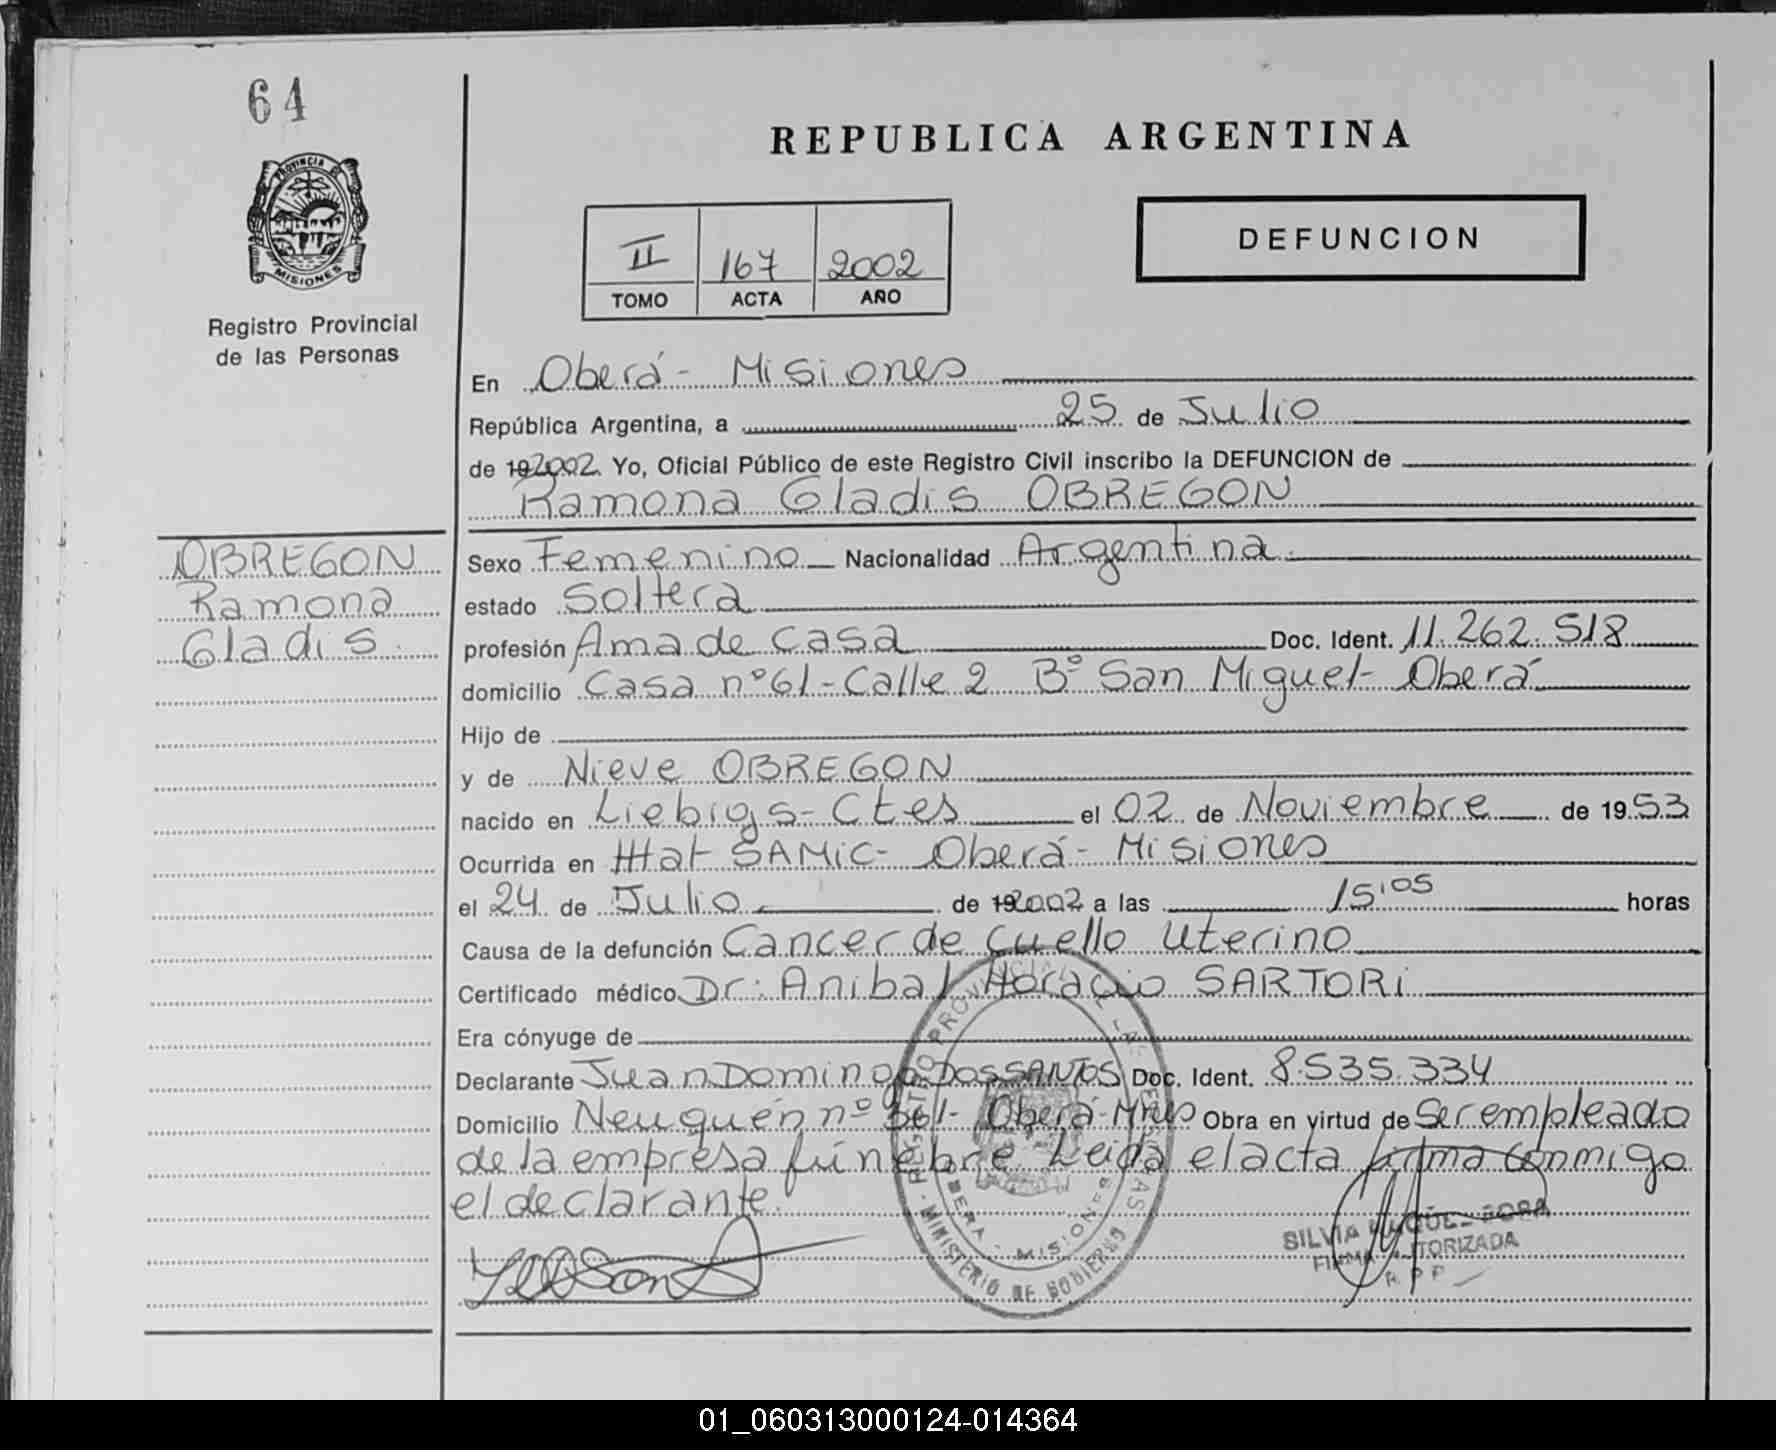 64
PROVINCIA DE
MISIONES
Registro Provincial
de las Personas
OBREGON
Ramona
Gladis.
REPUBLICA ARGENTINA
II 167 2002
TOMO ACTA AÑO
DEFUNCION
En Oberá - Misiones
República Argentina, a 25 de Julio
de 192002. Yo, Oficial Público de este Registro Civil inscribo la DEFUNCION de
Ramona Gladis OBREGON
Sexo Femenino Nacionalidad Argentina.
estado Soltera
profesión Ama de casa Doc. Ident. 11.262.518
domicilio Casa nº 61 - Calle 2 Bº San Miguel - Oberá
Hijo de
y de Nieve OBREGON
nacido en Liebigs - Ctes el 02 de Noviembre de 1953
Ocurrida en Htal SAMIC - Oberá - Misiones
el 24 de Julio de 192002 a las 15,05 horas
Causa de la defunción Cancer de Cuello Uterino
Certificado médico Dr: Anibal Horacio SARTORI
Era cónyuge de
Declarante Juan Domingo DOSSANTOS Doc. Ident. 8.535.334
Domicilio Neuquén nº 361 - Oberá - Mnes Obra en virtud de Ser empleado
de la empresa fúnebre. Leida el acta firma conmigo
el declarante.
REGISTRO PROVINCIAL DE LAS PERSONAS
OBERA - MISIONES
MINISTERIO DE GOBIERNO
SILVIA
FIRMA AUTORIZADA
R. P. P.
01_060313000124-014364